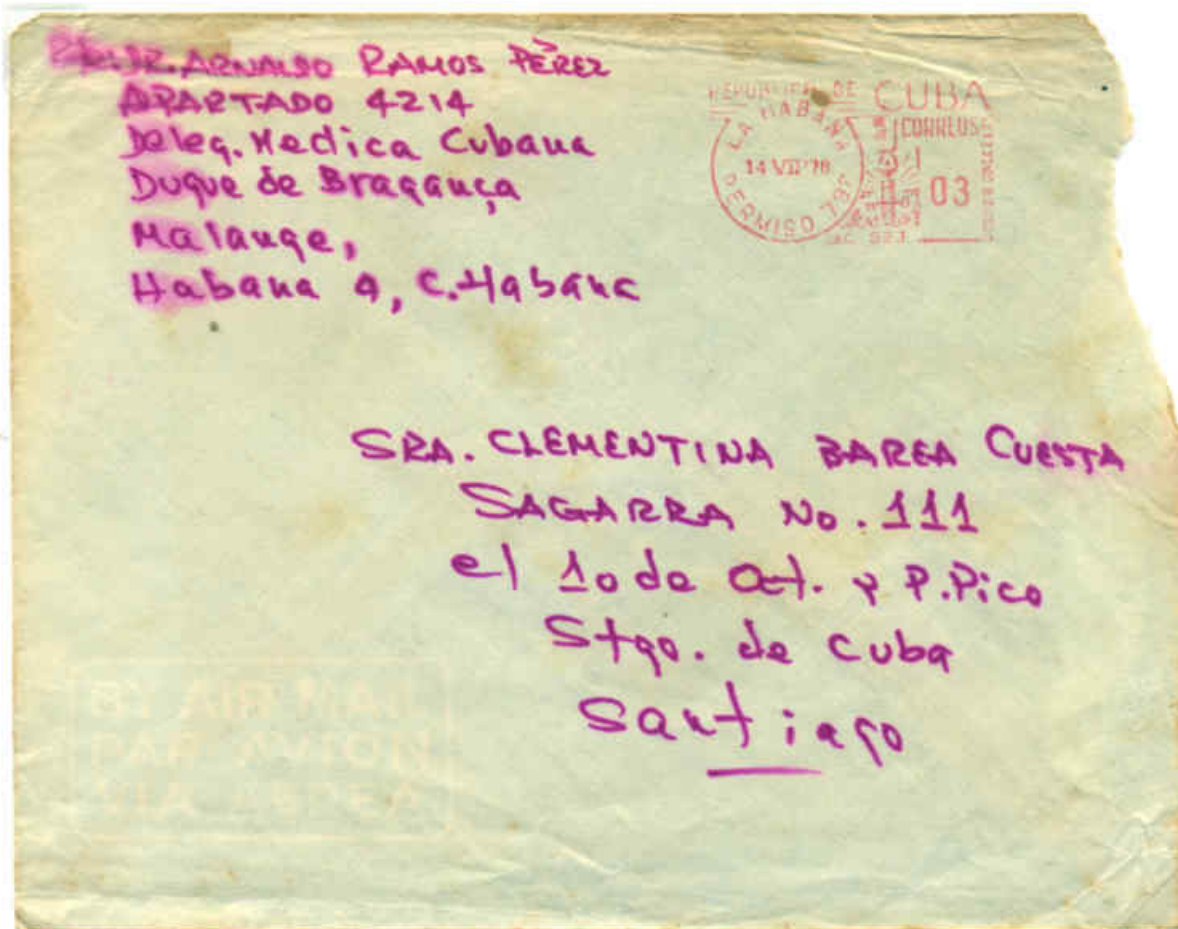 DR. ARNALDO RAMOS PÉREZ
APARTADO 4214
Deleg. Medica Cubana
Duque de Bragança
Malange,
Habana 4, C. Habana
REPUBLICA DE CUBA
CORREOS
LA HABANA
14 VII 78
PERMISO
03
SRA. CLEMENTINA BAREA CUESTA
SAGARRA No. 111
e/ 1o de Oct. y P. Pico
Stgo. de Cuba
Santiago
BY AIR MAIL
PAR AVION
VIA AEREA